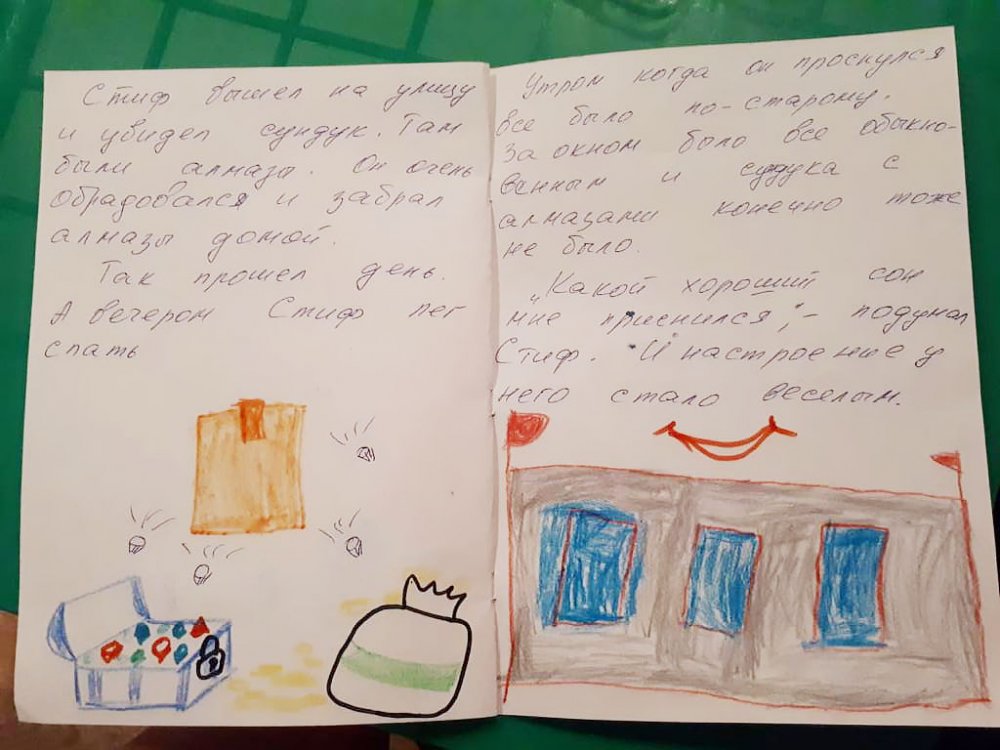 Стиф вышел на улицу
и увидел сундук. Там
были алмазы. Он очень
обрадовался и забрал
алмазы домой.
Так прошел день.
А вечером Стиф лег
спать
Утром когда он проснулся
все было по-старому.
За окном было все обыкно-
венным и судука с
алмазами конечно тоже
не было.
„Какой хороший сон
мне приснился“,- подумал
Стиф. И настроение у
него стало веселым.